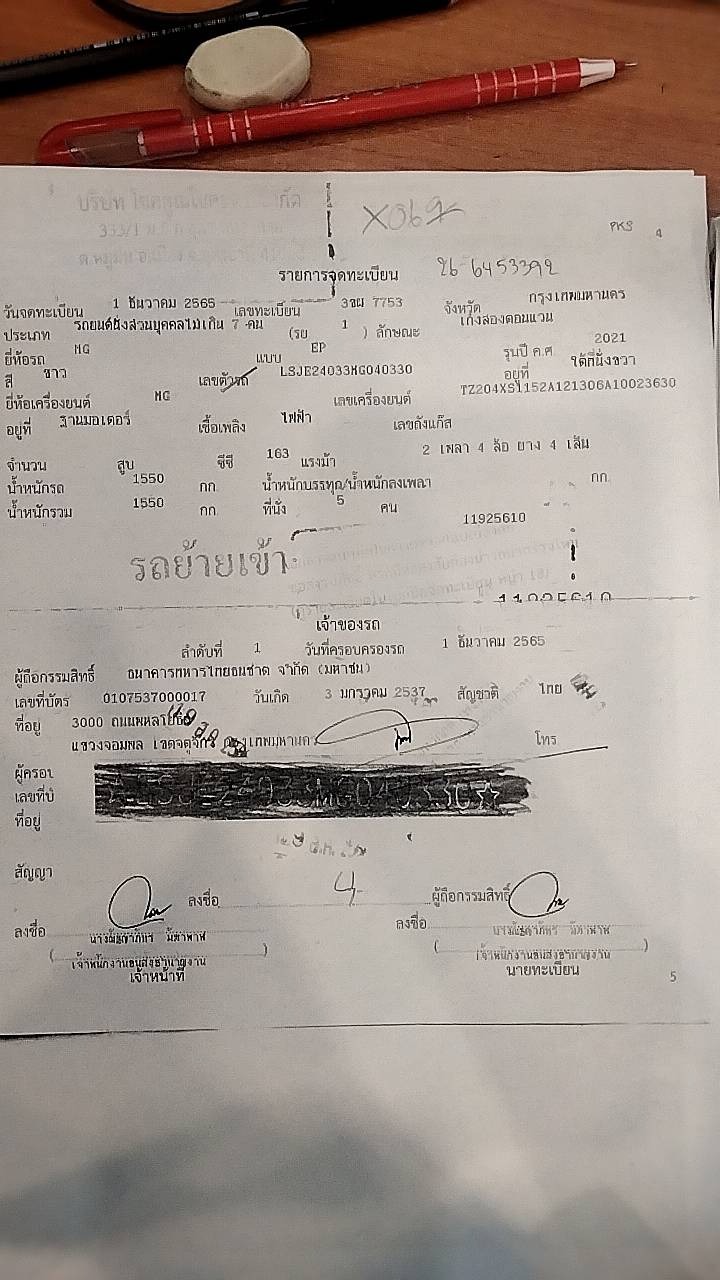 บริษัท
333/1
X069
PKS 4
26-6453392
รายการจดทะเบียน
วันจดทะเบียน 1 ธันวาคม 2565 เลขทะเบียน 3ขผ 7753 จังหวัด กรุงเทพมหานคร
ประเภท รถยนต์นั่งส่วนบุคคลไม่เกิน 7 คน (รย 1 ) ลักษณะ เก๋งสองตอนแวน
ยี่ห้อรถ MG แบบ EP รุ่นปี ค.ศ. 2021
สี ขาว เลขตัวรถ LSJE24033MG040330 อยู่ที่ ใต้ที่นั่งขวา
ยี่ห้อเครื่องยนต์ MG เลขเครื่องยนต์ TZ204XS1152A121306A10023630
อยู่ที่ ฐานมอเตอร์ เชื้อเพลิง ไฟฟ้า เลขถังแก๊ส
จำนวน สูบ ซีซี 163 แรงม้า 2 เพลา 4 ล้อ ยาง 4 เส้น
น้ำหนักรถ 1550 กก. น้ำหนักบรรทุก/น้ำหนักลงเพลา กก.
น้ำหนักรวม 1550 กก. ที่นั่ง 5 คน
11925610
รถย้ายเข้า
11925610
เจ้าของรถ
ลำดับที่ 1 วันที่ครอบครองรถ 1 ธันวาคม 2565
ผู้ถือกรรมสิทธิ์ ธนาคารทหารไทยธนชาต จำกัด (มหาชน)
เลขที่บัตร 0107537000017 วันเกิด 3 มกราคม 2537 สัญชาติ ไทย
ที่อยู่ 3000 ถนนพหลโยธิน
แขวงจอมพล เขตจตุจักร กรุงเทพมหานคร โทร
ผู้ครอบ
เลขที่บั
LSJE24033MG040330☆
ที่อยู่
สัญญา
ลงชื่อ ผู้ถือกรรมสิทธิ์
ลงชื่อ ลงชื่อ
( เจ้าพนักงานขนส่งชำนาญงาน ) ( เจ้าพนักงานขนส่งชำนาญงาน )
เจ้าหน้าที่ นายทะเบียน
5